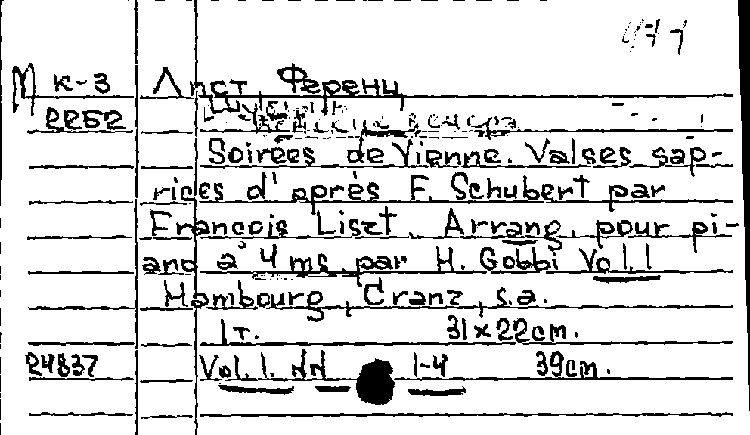 М к-3 Лист, Ференц
2252
венские вечера
Soirées de Vienne. Valses sap-
rices d'après F. Schubert par
François Liszt. Arrang. pour pi-
ano à 4 ms. par H. Gobbi Vol. I
Hambourg, Cranz, s.a.
1т. 31x22cm.
24837 Vol. I. NN 1-4 39cm.